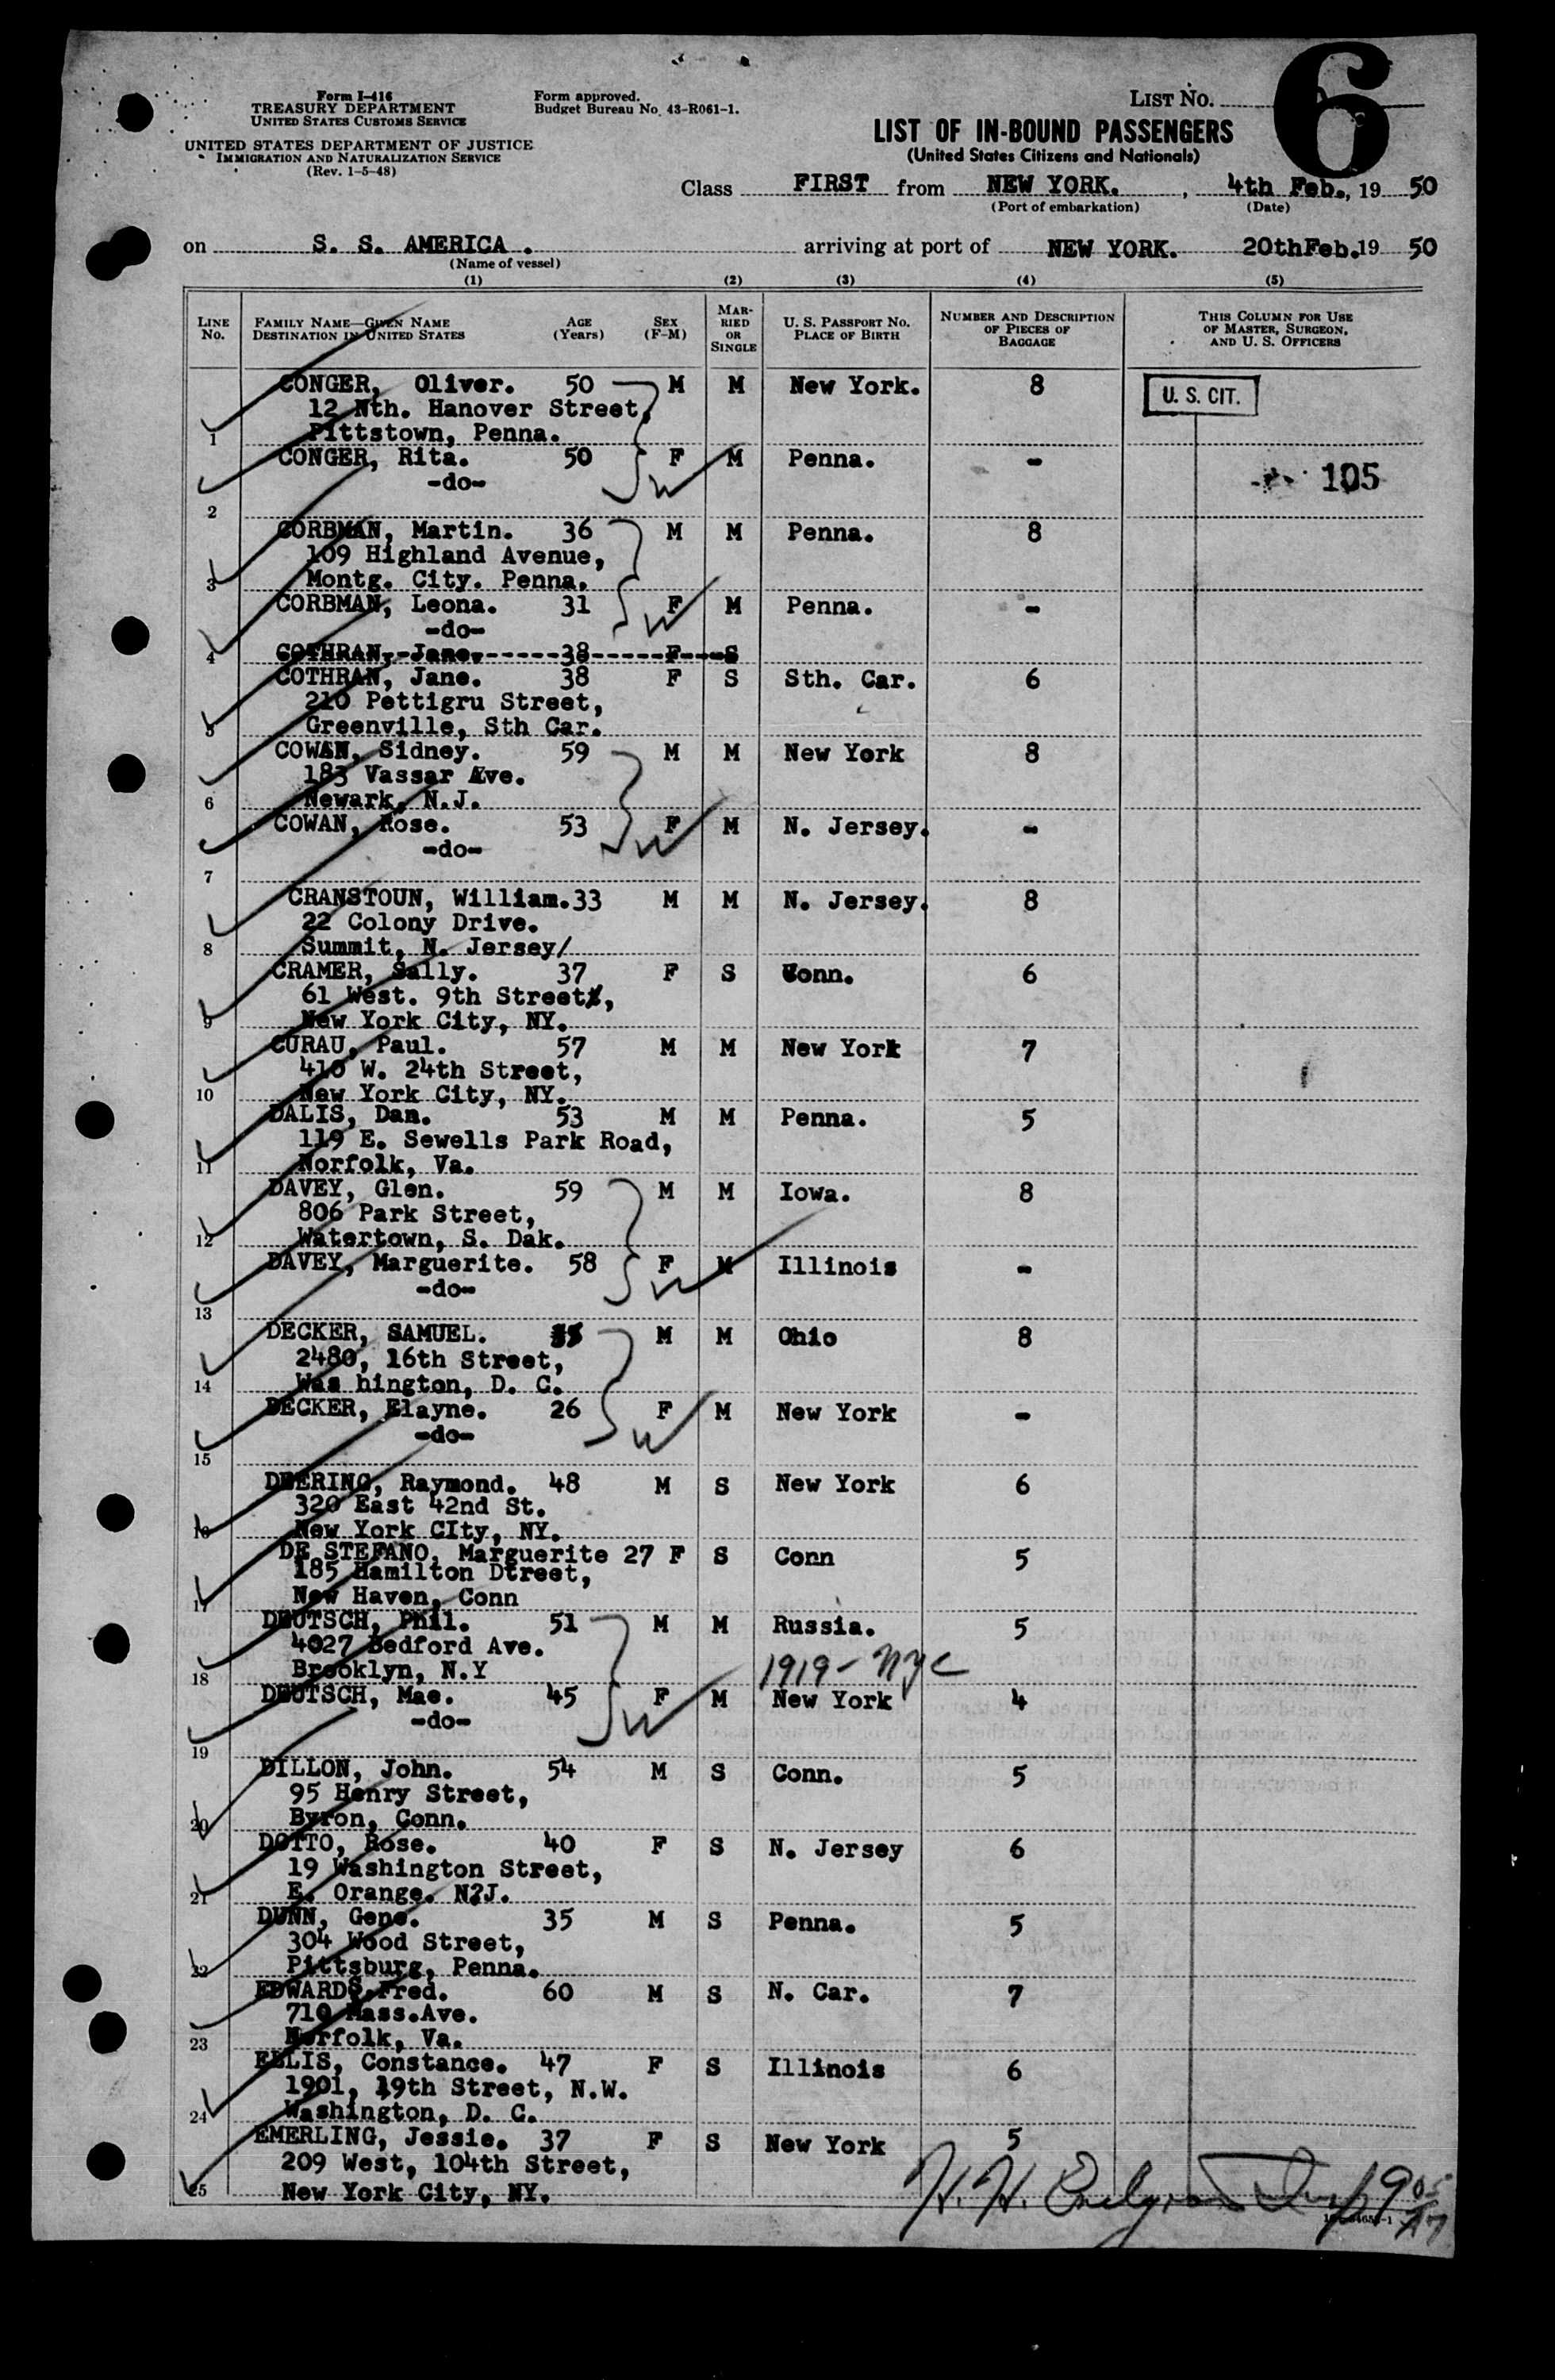 Form I-416
TREASURY DEPARTMENT
UNITED STATES CUSTOMS SERVICE
UNITED STATES DEPARTMENT OF JUSTICE
IMMIGRATION AND NATURALIZATION SERVICE
(Rev. 1-5-48)
Form approved.
Budget Bureau No. 43-R061-1.
LIST No. 6
LIST OF IN-BOUND PASSENGERS
(United States Citizens and Nationals)
Class FIRST from NEW YORK. , 4th Feb., 19 50
(Port of embarkation) (Date)
on S. S. AMERICA . arriving at port of NEW YORK. 20thFeb.19 50
(Name of vessel)
(1) (2) (3) (4) (5)
LINE No. FAMILY NAME—GIVEN NAME DESTINATION IN UNITED STATES AGE (Years) SEX (F-M) MARRIED OR SINGLE U. S. PASSPORT NO. PLACE OF BIRTH NUMBER AND DESCRIPTION OF PIECES OF BAGGAGE THIS COLUMN FOR USE OF MASTER, SURGEON, AND U. S. OFFICERS
CONGER, Oliver. 50 M M New York. 8 U. S. CIT.
12 Nth. Hanover Street,
1 Pittstown, Penna.
CONGER, Rita. 50 F M Penna. -
-do- 105
2
CORBMAN, Martin. 36 M M Penna. 8
109 Highland Avenue,
3 Montg. City. Penna.
CORBMAN, Leona. 31 F M Penna. -
-do-
4 COTHRAN,-Jane.------38-----F---S
COTHRAN, Jane. 38 F S Sth. Car. 6
210 Pettigru Street,
5 Greenville, Sth Car.
COWAN, Sidney. 59 M M New York 8
183 Vassar Ave.
6 Newark, N.J.
COWAN, Rose. 53 F M N. Jersey. -
-do-
7
CRANSTOUN, William.33 M M N. Jersey. 8
22 Colony Drive.
8 Summit, N. Jersey/
CRAMER, Sally. 37 F S Conn. 6
61 West. 9th Street,
9 New York City, NY.
CURAU, Paul. 57 M M New York 7
410 W. 24th Street,
10 New York City, NY.
DALIS, Dan. 53 M M Penna. 5
119 E. Sewells Park Road,
11 Norfolk, Va.
DAVEY, Glen. 59 M M Iowa. 8
806 Park Street,
12 Watertown, S. Dak.
DAVEY, Marguerite. 58 F M Illinois -
-do-
13
DECKER, SAMUEL. M M Ohio 8
2480, 16th Street,
14 Was hington, D. C.
DECKER, Elayne. 26 F M New York -
-do-
15
DEERING, Raymond. 48 M S New York 6
320 East 42nd St.
16 New York CIty, NY.
DE STEFANO, Marguerite 27 F S Conn 5
185 Hamilton Dtreet,
17 New Haven, Conn
DEUTSCH, Phil. 51 M M Russia. 5
4027 Bedford Ave.
18 Brooklyn, N.Y 1919 - NYC
DEUTSCH, Mae. 45 F M New York 4
-do-
19
DILLON, John. 54 M S Conn. 5
95 Henry Street,
20 Byron, Conn.
DOTTO, Rose. 40 F S N. Jersey 6
19 Washington Street,
21 E. Orange. N?J.
DUNN, Gene. 35 M S Penna. 5
304 Wood Street,
22 Pittsburg, Penna.
EDWARDS,Fred. 60 M S N. Car. 7
710 Mass.Ave.
23 Norfolk, Va.
ELLIS, Constance. 47 F S Illinois 6
1901, 19th Street, N.W.
24 Washington, D. C.
EMERLING, Jessie. 37 F S New York 5
209 West, 104th Street,
25 New York City, NY.
H. H.